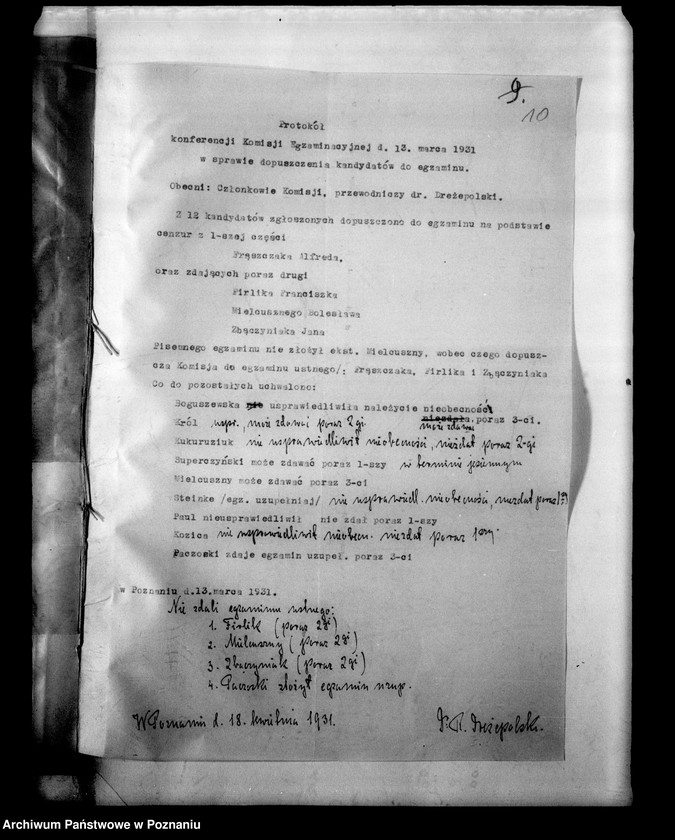 9.
10
Protokół
konferencji Komisji Egzaminacyjnej d. 13. marca 1931
w sprawie dopuszczenia kandydatów do egzaminu.
Obecni: Członkowie Komisji, przewodniczy dr. Dreżepolski.
Z 12 kandydatów zgłoszonych dopuszczono do egzaminu na podstawie
cenzur z 1-szej części
Prąszczaka Alfreda,
oraz zdających poraz drugi
Firlika Franciszka
Mielcusznego Bolesława
Zbączyniaka Jana
Pisemnego egzaminu nie złożył ekst. Mielcuszny, wobec czego dopusz-
cza Komisja do egzaminu ustnego/: Prąszczaka, Firlika i Zbączyniaka
Co do pozostałych uchwalono:
Boguszewska nie usprawiedliwiła należycie nieobecność
niezdała poraz 3-ci.
Król uspr., może zdawać poraz 2gi może zdawać
Kukuruziuk nie usprawiedliwił nieobecności, niezdał poraz 2-gi
Superczyński może zdawać poraz 1-szy w terminie jesiennym
Mielcuszny może zdawać poraz 3-ci
Steinke /egz. uzupełniaj/ nie usprawiedl. nieobecności, niezdał poraz
Paul nieusprawiedliwił nie zdał poraz 1-szy
Kozica nie usprawiedliwił nieobecn. niezdał poraz 1szy.
Paczoski zdaje egzamin uzupeł. poraz 3-ci
w Poznaniu d.13.marca 1931.
Nie zdali egzaminu ustnego:
1. Firlik (poraz 2gi)
2. Mielcuszny (poraz 2gi)
3. Zbączyniak (poraz 2gi)
4. Paczoski złożył egzamin uzup.
W Poznaniu d. 18. kwietnia 1931.
Dr. R. Dreżepolski.
Archiwum Państwowe w Poznaniu